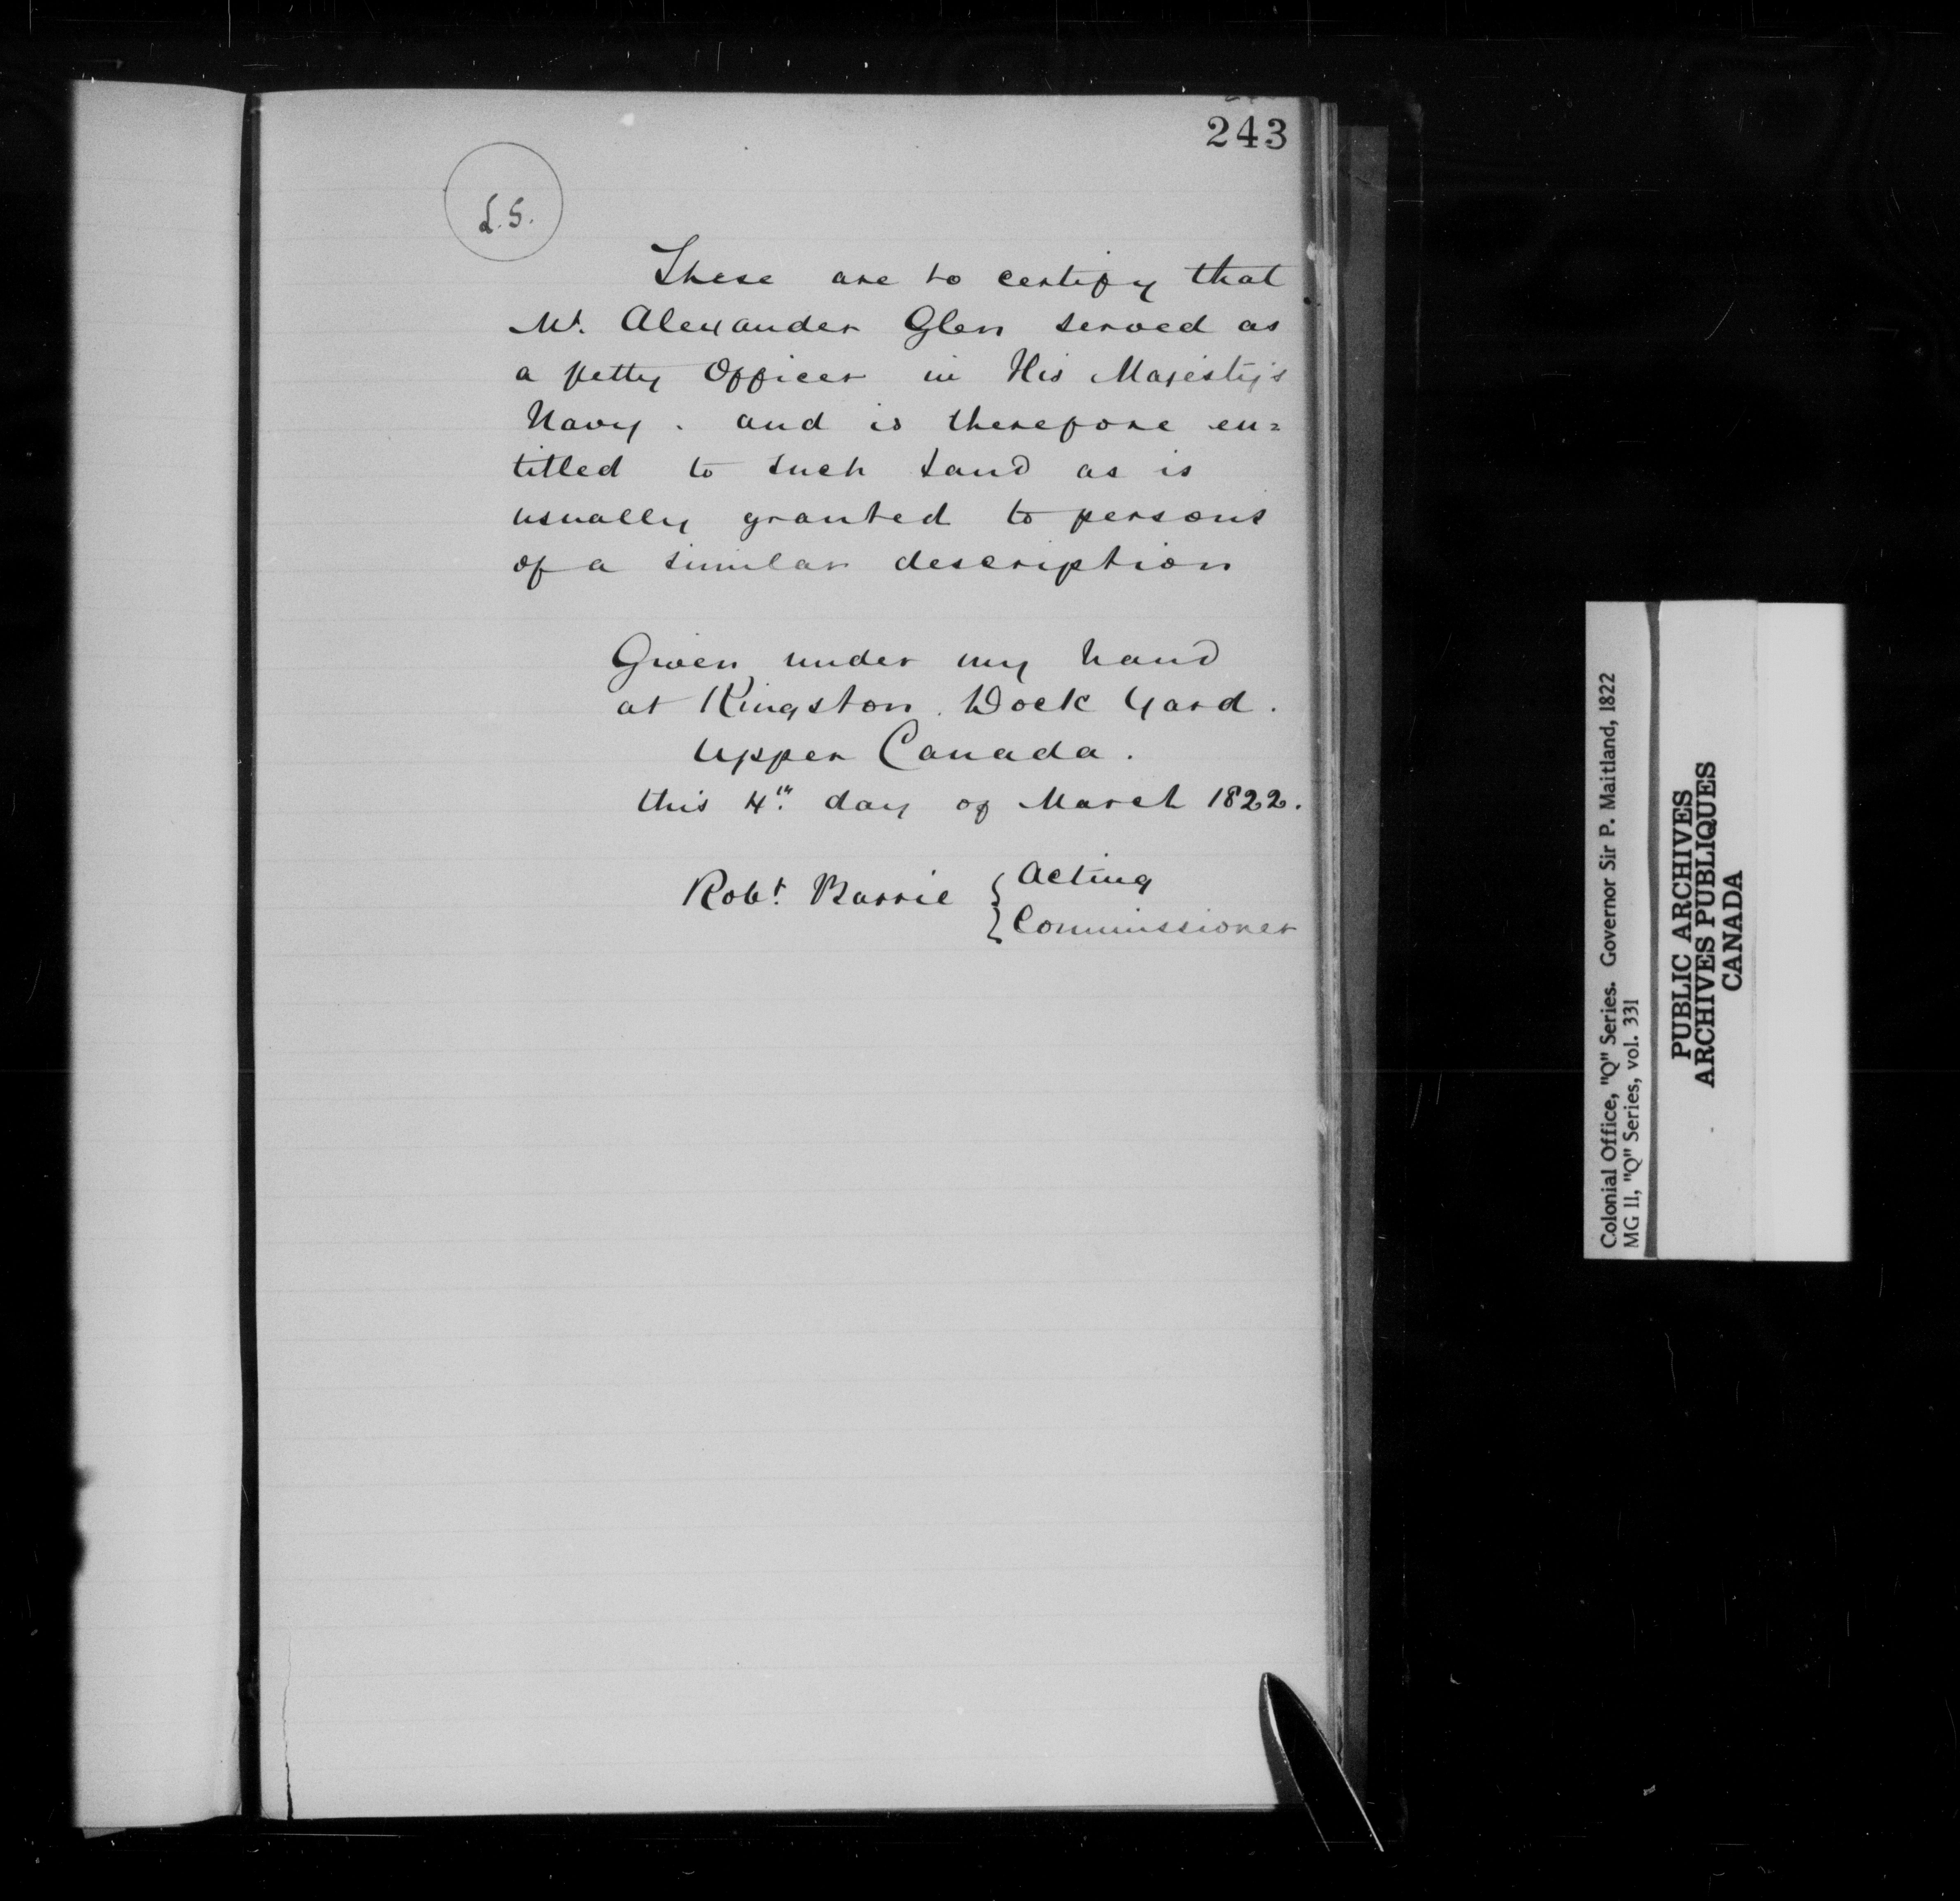 243
L.S.
These are to certify that
Mr. Alexander Glen served as
a petty Officer in His Majesty's
Navy. and is therefore en=
titled to such Land as is
usually granted to persons
of a similar description
Given under my hand
at Kingston. Dock Yard.
Upper Canada.
this 4th day of March 1822.
Robt. Barrie { Acting
{ Commissioner
Colonial Office, "Q" Series. Governor Sir P. Maitland, 1822
MG 11, "Q" Series, vol. 331
PUBLIC ARCHIVES
ARCHIVES PUBLIQUES
CANADA